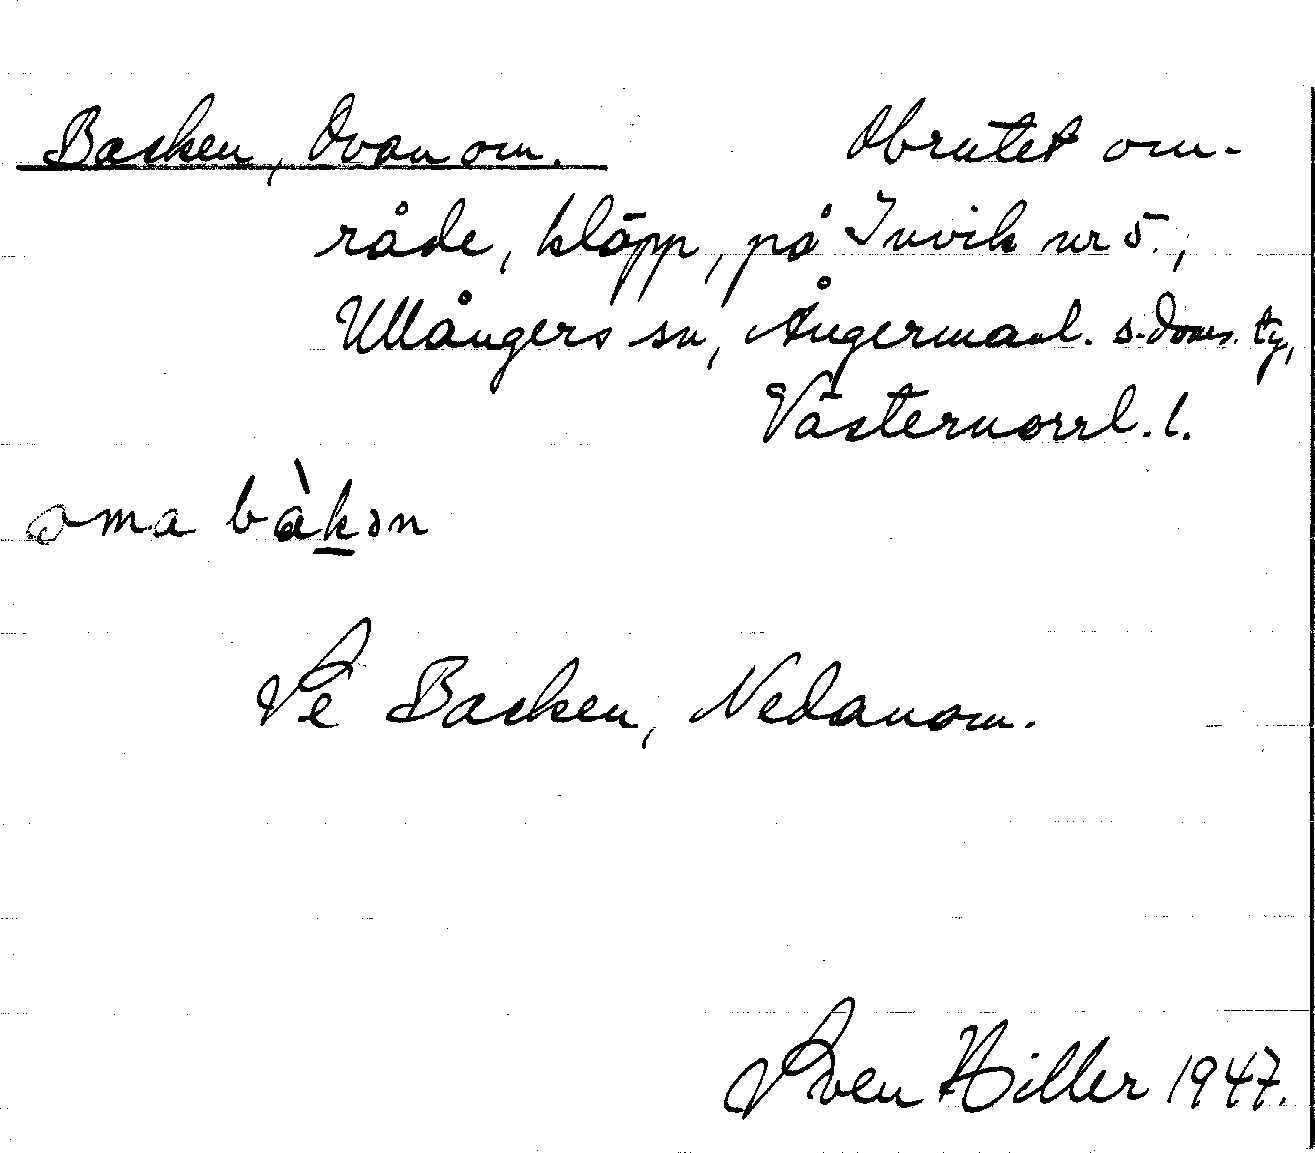 Backen, Ovanom. Obrutet om-
råde, kläpp, på Invik nr 5.,
Ullångers sn, Ångermanl. s. doms. tg,
Västernorrl. l.
oma bàkən
Se Backen, Nedanom.
Sven Hiller 1947.